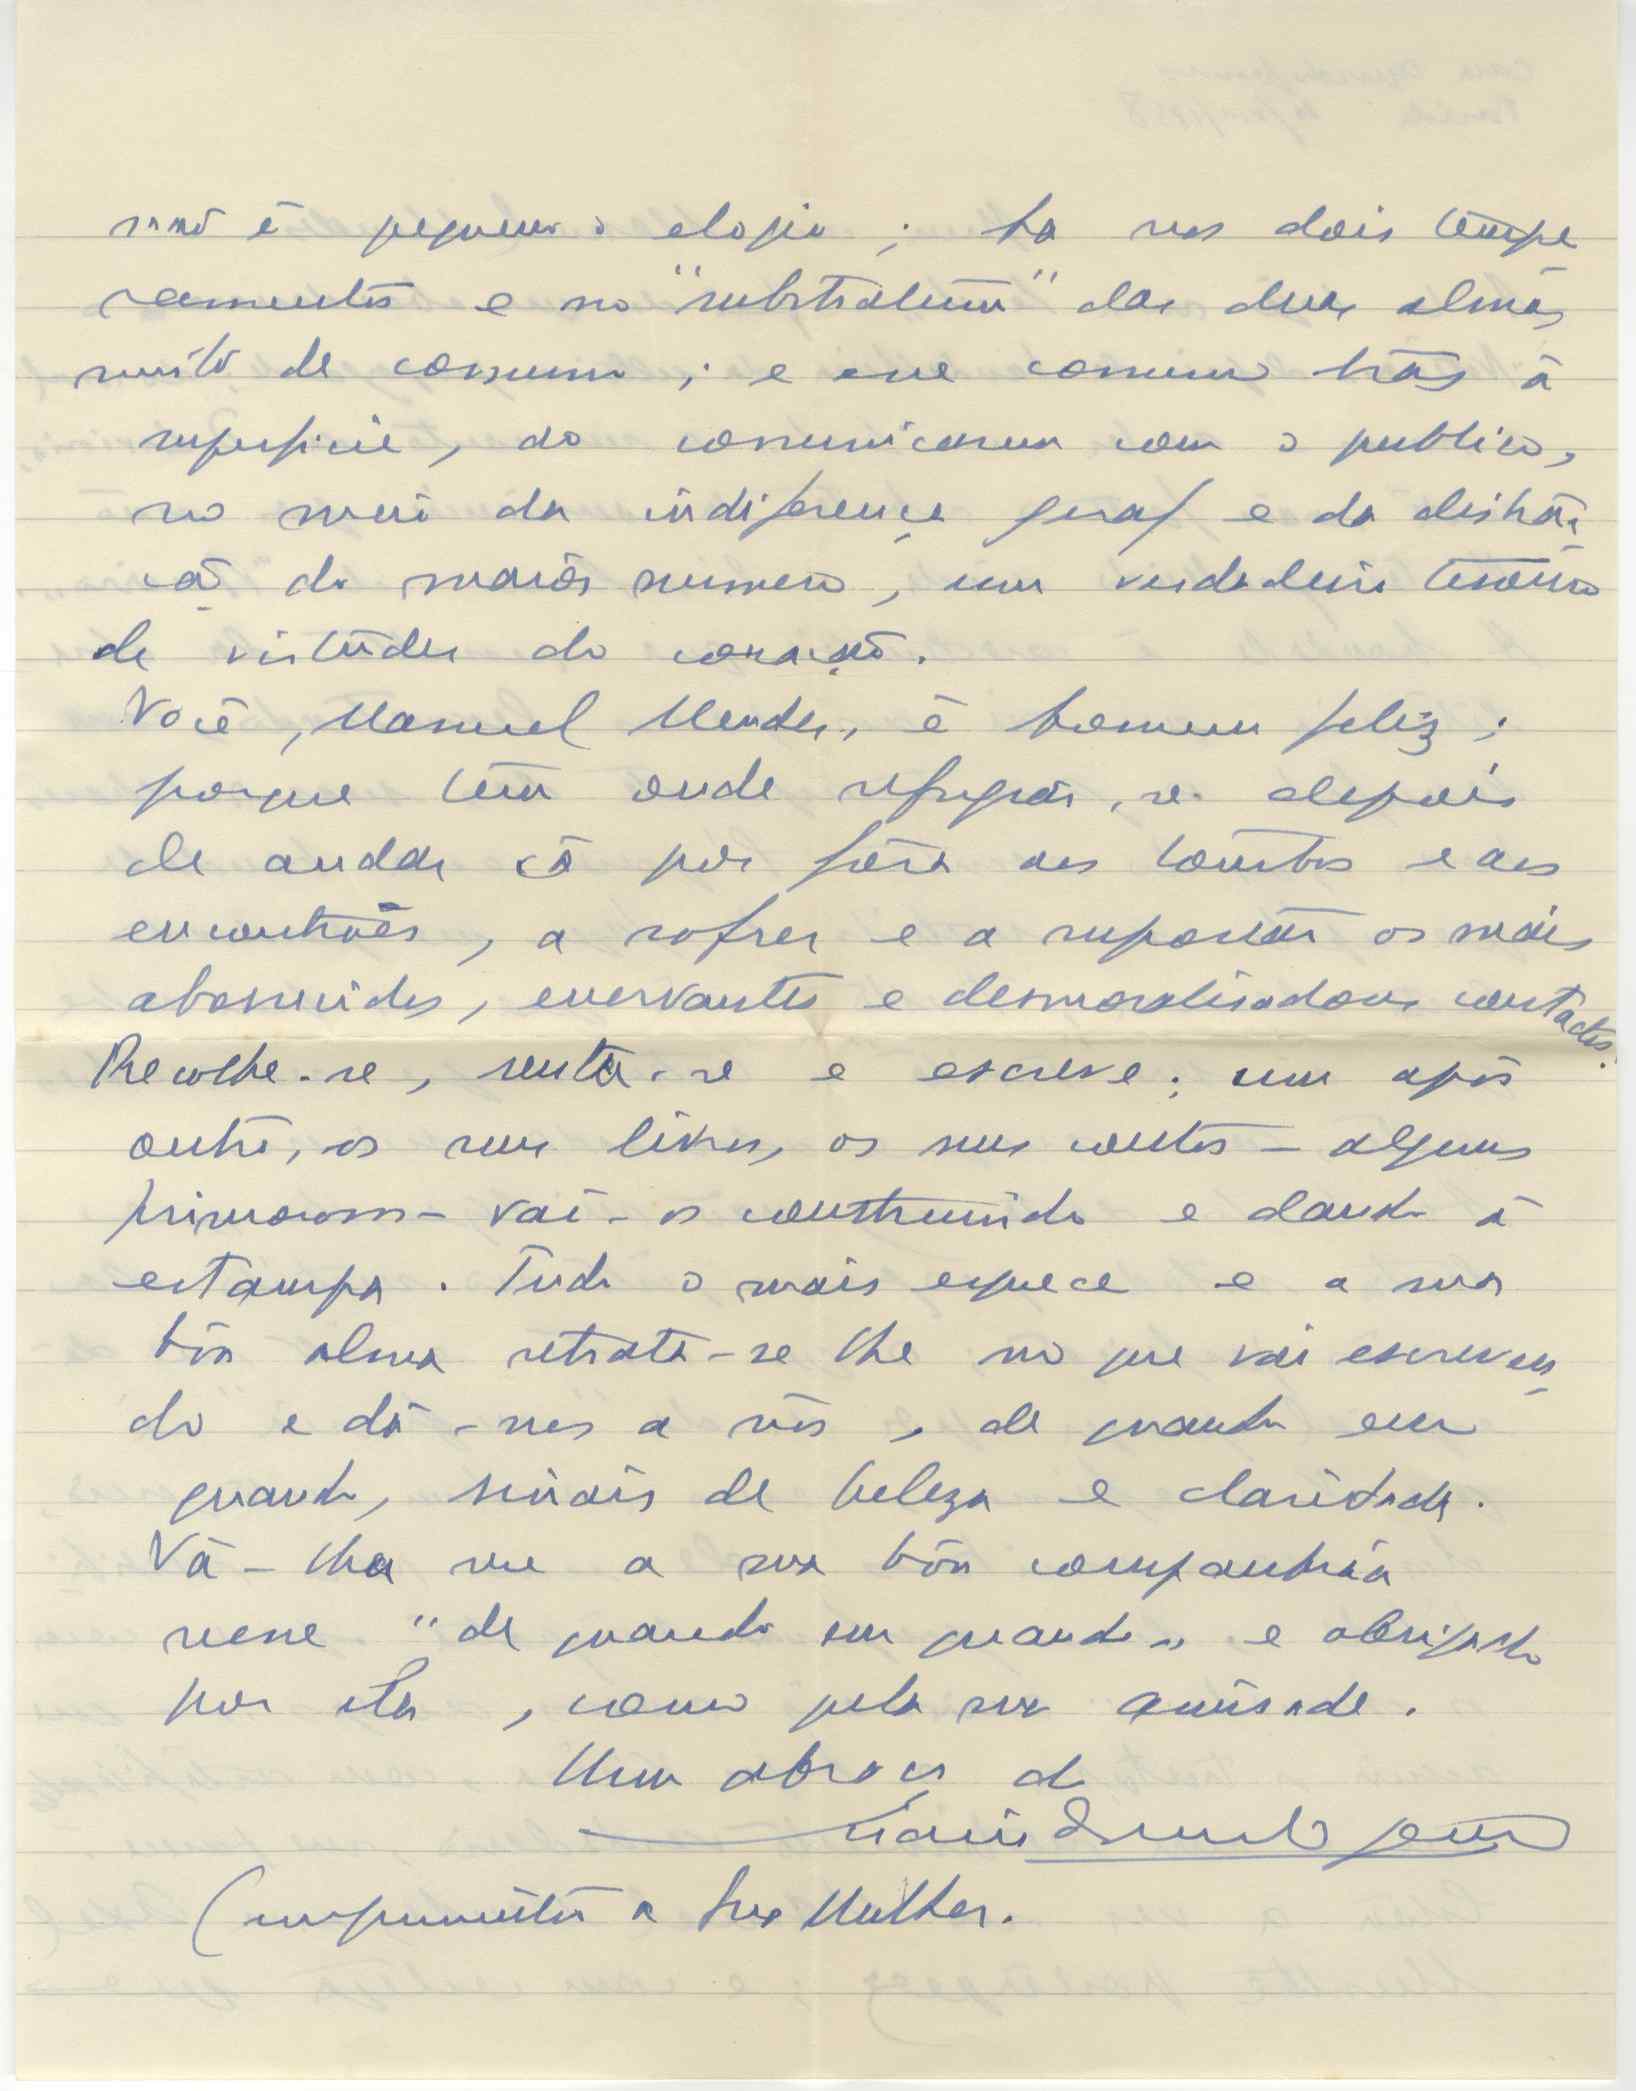 não é pequeno o elogio; ha nos dois tempe
ramentos e no "substratum" das duas almas
muito de comum; e esse comum trás á
superficie, ao comunicarem com o publico,
no meio da indiferença geral e da distrac
ção do maiór numero, um verdadeiro tesouro
de virtudes do coração.
Você, Manuel Mendes, é homem feliz;
porque tem onde refugiar-se depois
de andar cá por fóra aos tombos e aos
encontrões, a sofrer e a suportar os mais
aborrecidos, enervantes e desmoralisadores contactos.
Recolhe-se, senta-se e escreve; um após
outro, os seus livros, os seus contos - alguns
primorosos - vai-os construindo e dando á
estampa. Tudo o mais esquece e a sua
bôa alma retrata-se lhe no que vai escreven
do e dá-nos a nós, de quando em
quando, sinais de beleza e claridade.
Vá-lha me a sua bôa companhia
nesse "de quando em quando" e obrigado
por ela, como pela sua amisade.
Um abraço do
Cumprimentos a Sua Mulher.